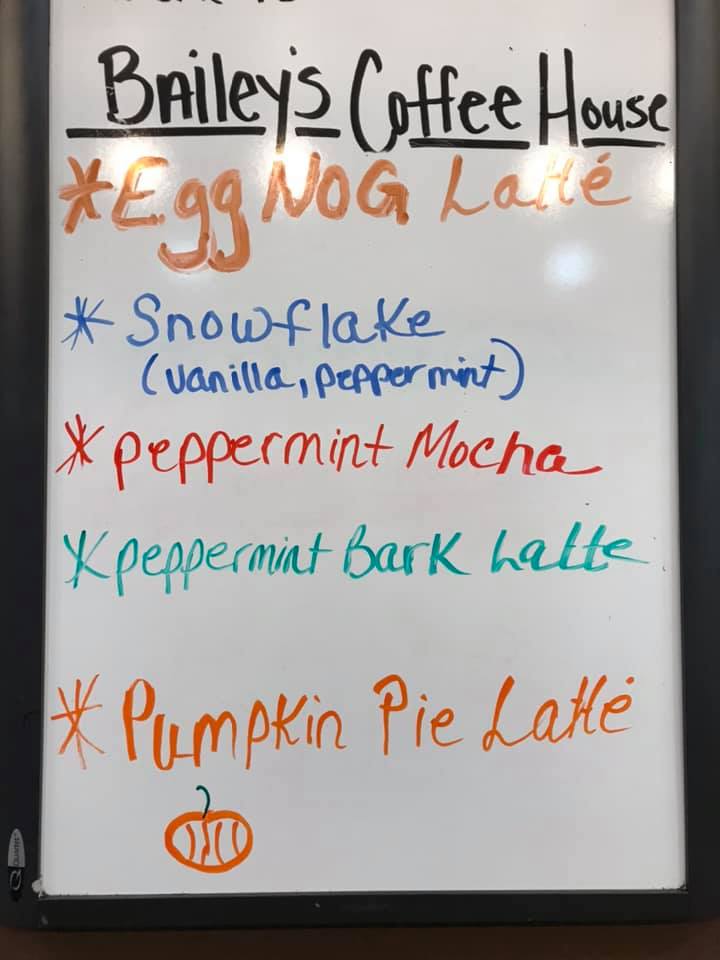 Bailey's Coffee House
*Egg NOG Latté
* Snowflake
(vanilla, peppermint)
* peppermint Mocha
*peppermint Bark Latte
* Pumpkin Pie Latté
Quartet